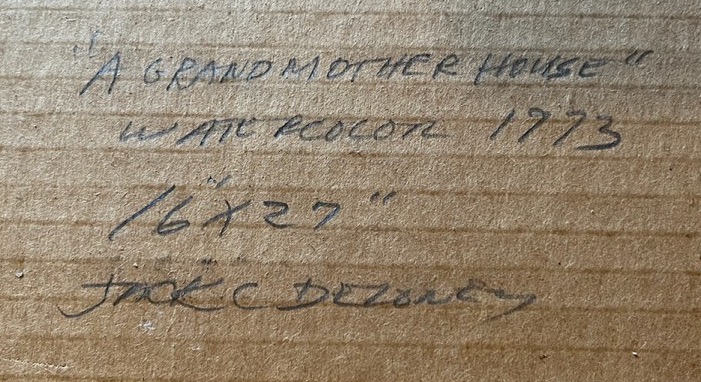 "A GRANDMOTHER HOUSE"
WATERCOLOR 1973
16" X 27"
JACK C DELONEY